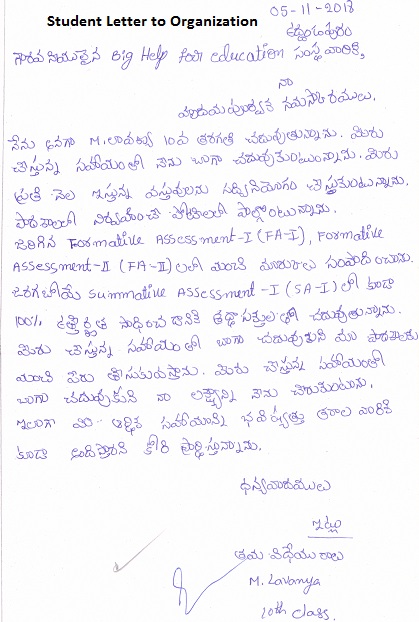 Student Letter to Organization
05-11-2018
గౌరవనీయులైన Big Help for education సంస్థ వారికి,
నా
హృదయపూర్వక నమస్కారములు.
నేను అనగా M.లావణ్య 10వ తరగతి చదువుతున్నాను. మీరు
చేస్తున్న సహాయంతో నేను బాగా చదువుకుంటున్నాను. మీరు
ప్రతి నెల ఇస్తున్న వస్తువులను సద్వినియోగం చేస్తుకుంటున్నాను.
పాఠశాలలో నిర్వహించే పోటీలలో పాల్గొంటున్నాను.
జరిగిన Formative Assessment-I (FA-I), Formative
Assessment-II (FA-II) లలో మంచి మార్కులు సంపాదించాను.
జరగబోయే Summative Assessment-I (SA-I) లో కూడా
100% ఉత్తీర్ణత సాధించడానికి చదువుతున్నాను.
మీరు చేస్తున్న సహాయంతో బాగా చదువుకుని మా పాఠశాలకు
మంచి పేరు తీసుకువస్తాను. మీరు చేస్తున్న సహాయంతో
బాగా చదువుకుని నా లక్ష్యాన్ని నేను చేరుకుంటాను.
ఇలాగే మీ ఆర్థిక సహాయాన్ని భవిష్యత్తు తరాల వారికి
కూడా అందిస్తారని కోరి ప్రార్థిస్తున్నాను.
ధన్యవాదములు
ఇట్లు
తమ విధేయురాలు
M. Lavanya
10th class.